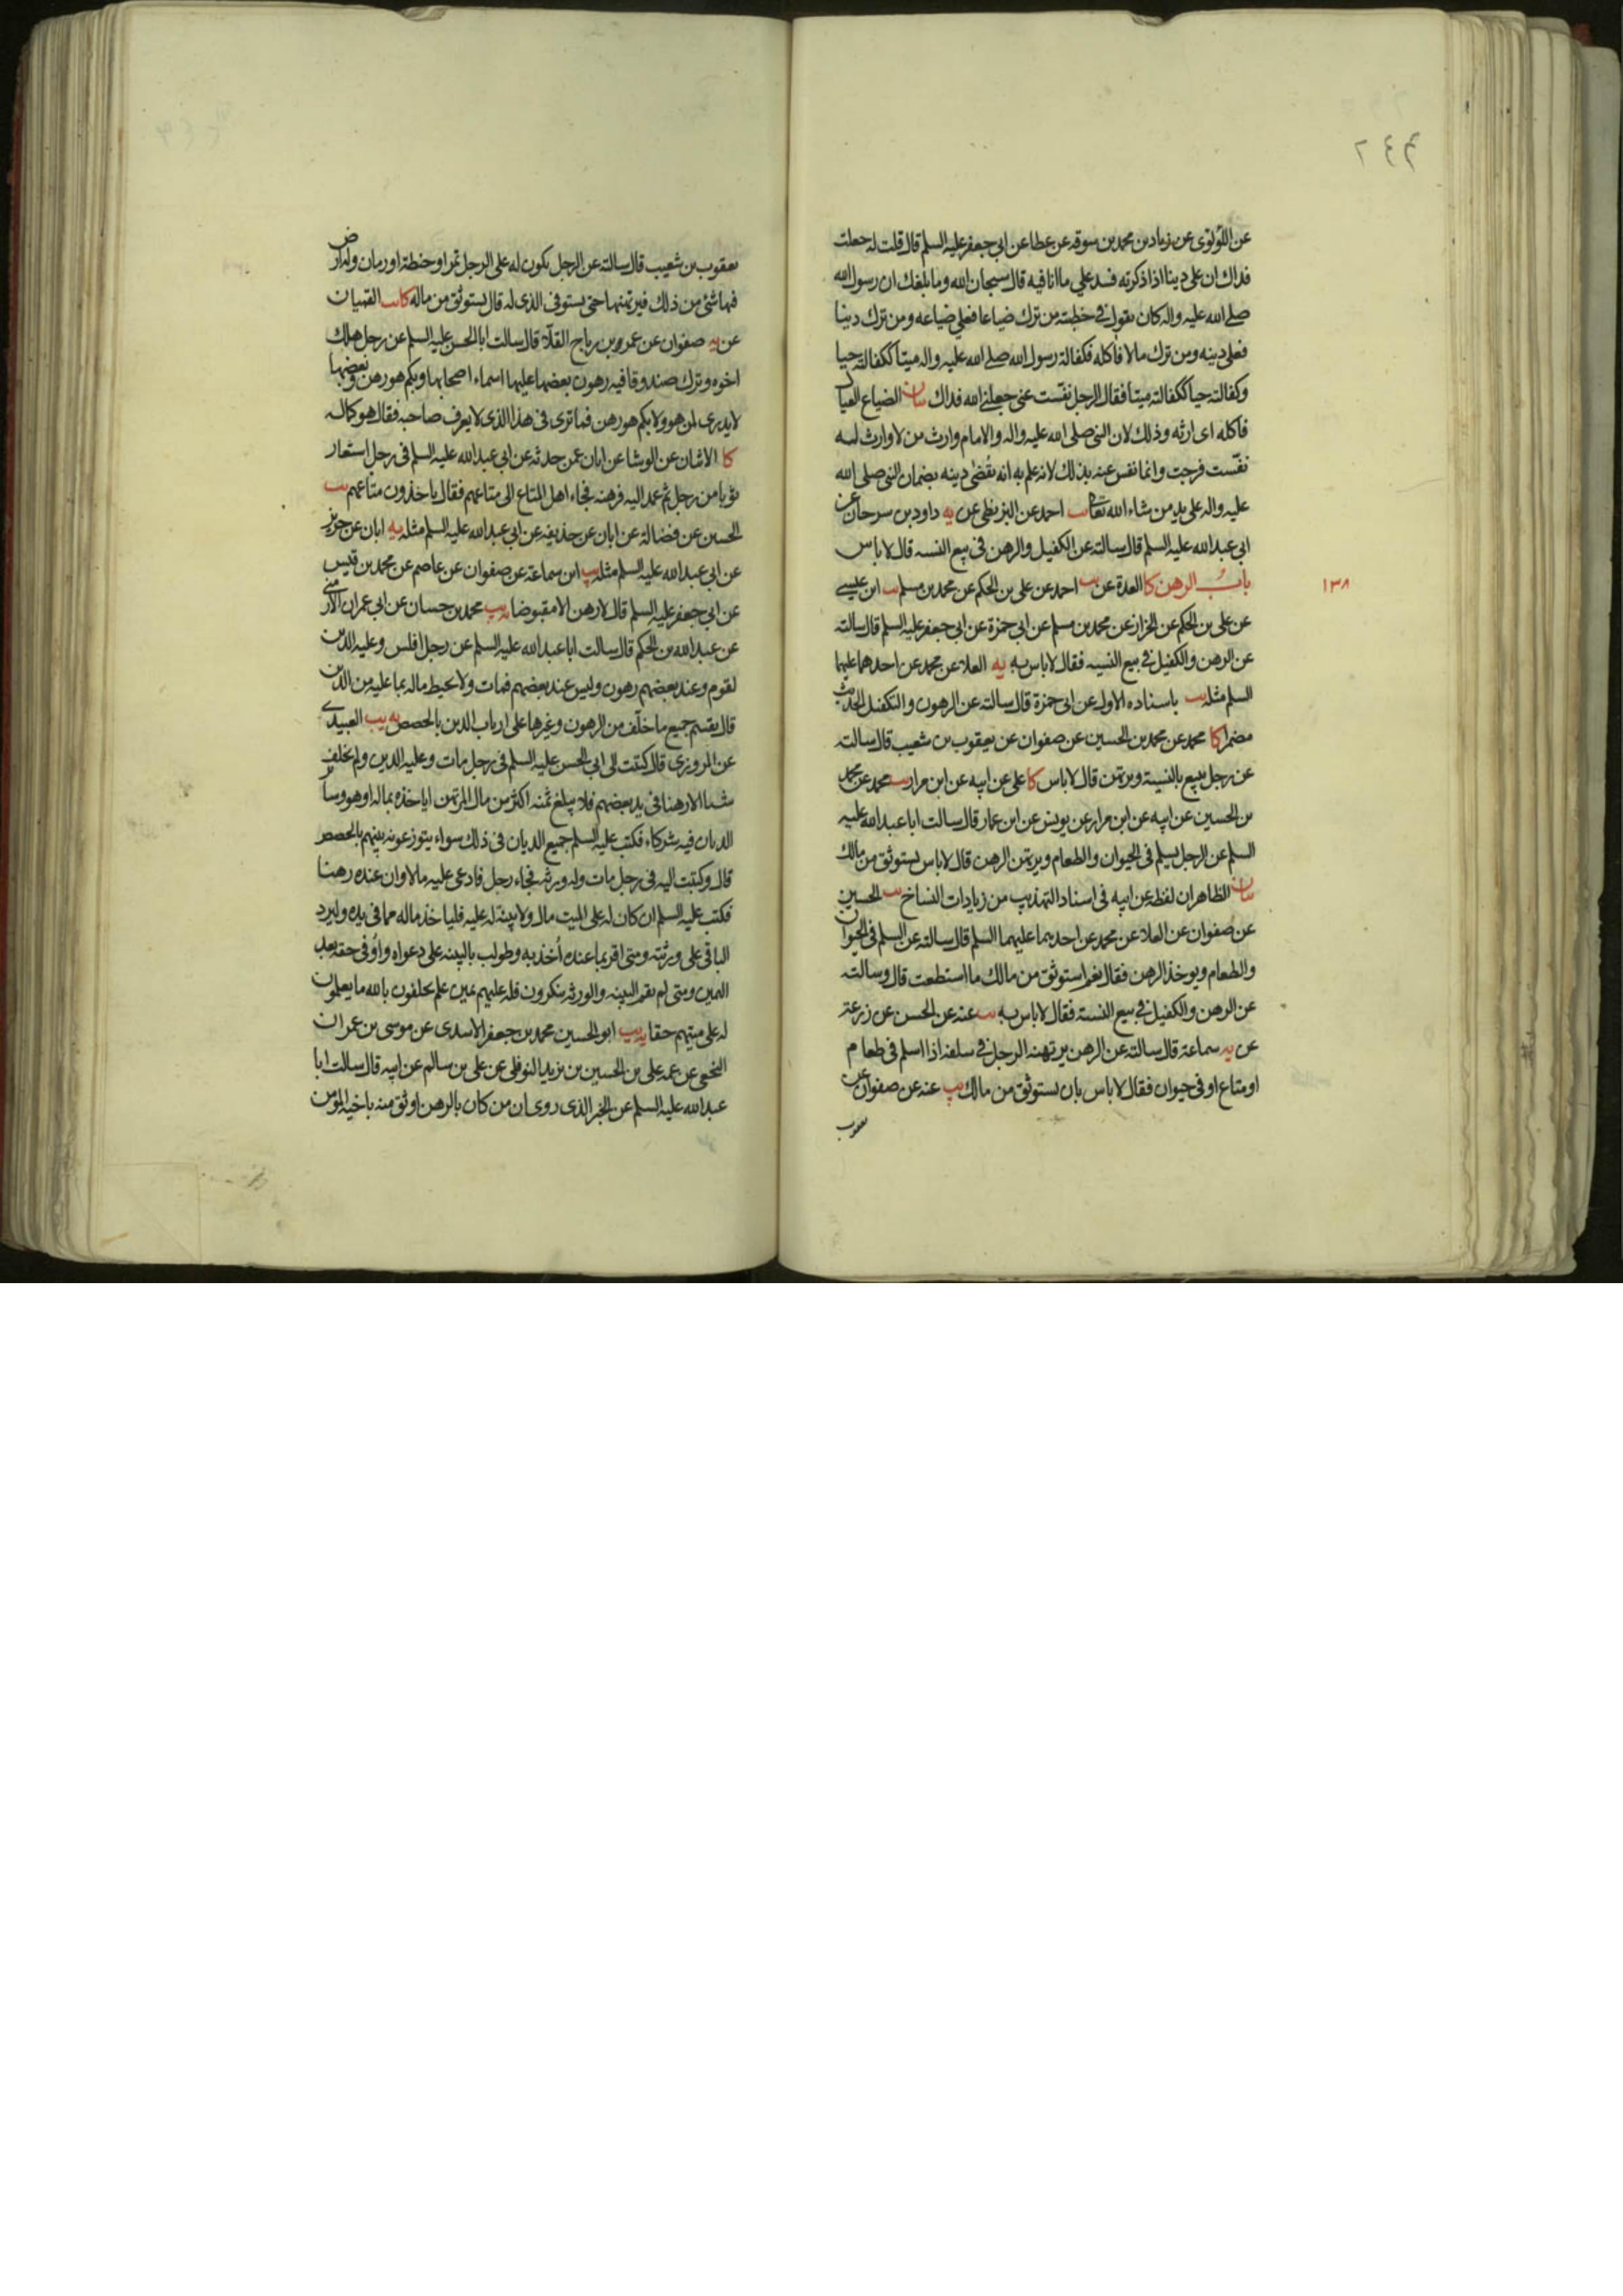 ٢٤٢
عن اللؤلؤی عن زیاد بن محمد بن سوقه عن عطا عن ابی جعفر علیه السلم قال قلت له جعلت
فداك ان علی دینا اذا ذکرته فسد علی ما انا فیه قال سبحان الله وما بلغك ان رسول الله
صلی الله علیه واله کان یقول فی خطبته من ترك ضیاعا فعلی ضیاعه ومن ترك دینا
فعلی دینه ومن ترك مالا فاکله فکفالة رسول الله صلی الله علیه واله میتا ککفالته حیا
وکفالته حیا ککفالته میتا فقال الرجل نفّست عنی جعلنی الله فداك بیان الضیاع العیال
فاکله ای ارثه وذلك لان النبی صلی الله علیه واله والامام وارث من لا وارث له
نفّست فرجت وانما نفس عنه بذلك لانه علم به انه یُقضی دینه بضمان النبی صلی الله
علیه واله علی ید من شاء الله تعالی یب احمد عن البزنطی عن یه داود بن سرحان عن
ابی عبدالله علیه السلم قال سالته عن الکفیل والرهن فی بیع النسیه قال لا باس
١٣٨
بابُ الرهن کا العدة عن یب احمد عن علی بن الحکم عن محمد بن مسلم یب ابن عیسی
عن علی بن الحکم عن الخزاز عن محمد بن مسلم عن ابی حمزة عن ابی جعفر علیه السلم قال سالته
عن الرهن والکفیل فی بیع النسیه فقال لا باس به یه العلا عن محمد عن احدهما علیهما
السلم مثله یب باسناده الاول عن ابی حمزة قال سالته عن الرهون والکفیل الحدیث
مضمرا کا محمد عن محمد بن الحسین عن صفوان عن یعقوب بن شعیب قال سالته
عن رجل یبیع بالنسیة ویرتهن قال لا باس کا علی عن ابیه عن ابن مرار یب محمد عن محمد
بن الحسین عن ابیه عن ابن مرار عن یونس عن ابن عمار قال سالت ابا عبدالله علیه
السلم عن الرجل یسلم فی الحیوان والطعام ویرتهن الرهن قال لا باس یستوثق من مالك
بیان الظاهر ان لفظة عن ابیه فی اسناد التهذیب من زیادات النساخ یب الحسین
عن صفوان عن العلا عن محمد عن احدهما علیهما السلم قال سالته عن السلم فی الحیوان
والطعام ویوخذ الرهن فقال نعم استوثق من مالك ما استطعت قال وسالته
عن الرهن والکفیل فی بیع النسیة فقال لا باس به یب عنه عن الحسن عن زرعة
عن یه سماعة قال سالته عن الرهن یرتهنه الرجل فی سلفه اذا اسلم فی طعام
او متاع او فی حیوان فقال لا باس بان یستوثق من مالك یب عنه عن صفوان عن
یعقوب
یعقوب بن شعیب قال سالته عن الرجل یکون له علی الرجل تمر او حنطة او رمان وله ارض
فیها شئ من ذلك فیرتهنها حتی یستوفی الذی له قال یستوثق من ماله کا یب القمیان
عن یه صفوان عن عمرو بن ریاح القلّاء قال سالت ابا الحسن علیه السلم عن رجل هلك
اخوه وترك صندوقا فیه رهون بعضها علیها اسماء اصحابها وبکم هو رهن وبعضها
لا یدری لمن هو ولا بکم هو رهن فما تری فی هذا الذی لا یعرف صاحبه فقال هو کماله
کا الاثنان عن الوشا عن ابان عمن حدثه عن ابی عبدالله علیه السلم فی رجل استعار
ثوبا من رجل ثم عمد الیه فرهنه فجاء اهل المتاع الی متاعهم فقال یاخذون متاعهم یب
الحسین عن فضالة عن ابان عن حذیفه عن ابی عبدالله علیه السلم مثله یه ابان عن حریز
عن ابی عبدالله علیه السلم مثله یب ابن سماعة عن صفوان عن عاصم عن محمد بن قیس
عن ابی جعفر علیه السلم قال لا رهن الا مقبوضا یه یب محمد بن حسان عن ابی عمران الارمنی
عن عبدالله بن الحکم قال سالت ابا عبدالله علیه السلم عن رجل افلس وعلیه الدین
لقوم وعند بعضهم رهون ولیس عند بعضهم فمات ولا یحیط ماله بما علیه من الدین
قال یقسم جمیع ما خلّف من الرهون وغیرها علی ارباب الدین بالحصص یه یب العبیدی
عن المروزی قال کتبت الی ابی الحسن علیه السلم فی رجل مات وعلیه الدین ولم یخلف
شیئا الا رهنا فی ید بعضهم فلا یبلغ ثمنه اکثر من مال المرتهن ایاخذه بماله او هو وسایر
الدیان فیه شرکاء فکتب علیه السلم جمیع الدیان فی ذلك سواء یتوزعونه بینهم بالحصص
قال وکتبت الیه فی رجل مات وله ورثه فجاء رجل فادعی علیه مالا وان عنده رهنا
فکتب علیه السلم ان کان له علی المیت مال ولا بینة له علیه فلیاخذ ماله مما فی یده ولیرد
الباقی علی ورثته ومتی اقر بما عنده اُخذ به وطولب بالبینه علی دعواه واُوفی حقه بعد
الیمین ومتی لم یقم البینه والورثه ینکرون فله علیهم یمین علم یحلفون بالله ما یعلمون
له علی میتهم حقا یه یب ابو الحسین محمد بن جعفر الاسدی عن موسی بن عمران
النخعی عن عمه علی بن الحسین بن یزید النوفلی عن علی بن سالم عن ابیه قال سالت ابا
عبدالله علیه السلم عن الخبر الذی روی ان من کان بالرهن اوثق منه باخیه المومن